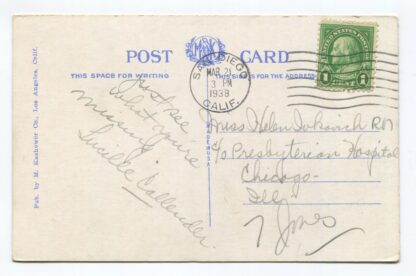 POST CARD
THIS SPACE FOR WRITING
THIS SIDE IS FOR THE ADDRESS
Pub. by M. Kashower Co., Los Angeles, Calif.
MADE IN USA
SAN DIEGO
MAR 21
3 PM
1938
CALIF.
UNITED STATES POSTAGE
1 1
Just see
what you're
missing
Lucille Callender
Miss Helen RN
c/o Presbyterian Hospital
Chicago-
Ill
7 Jones